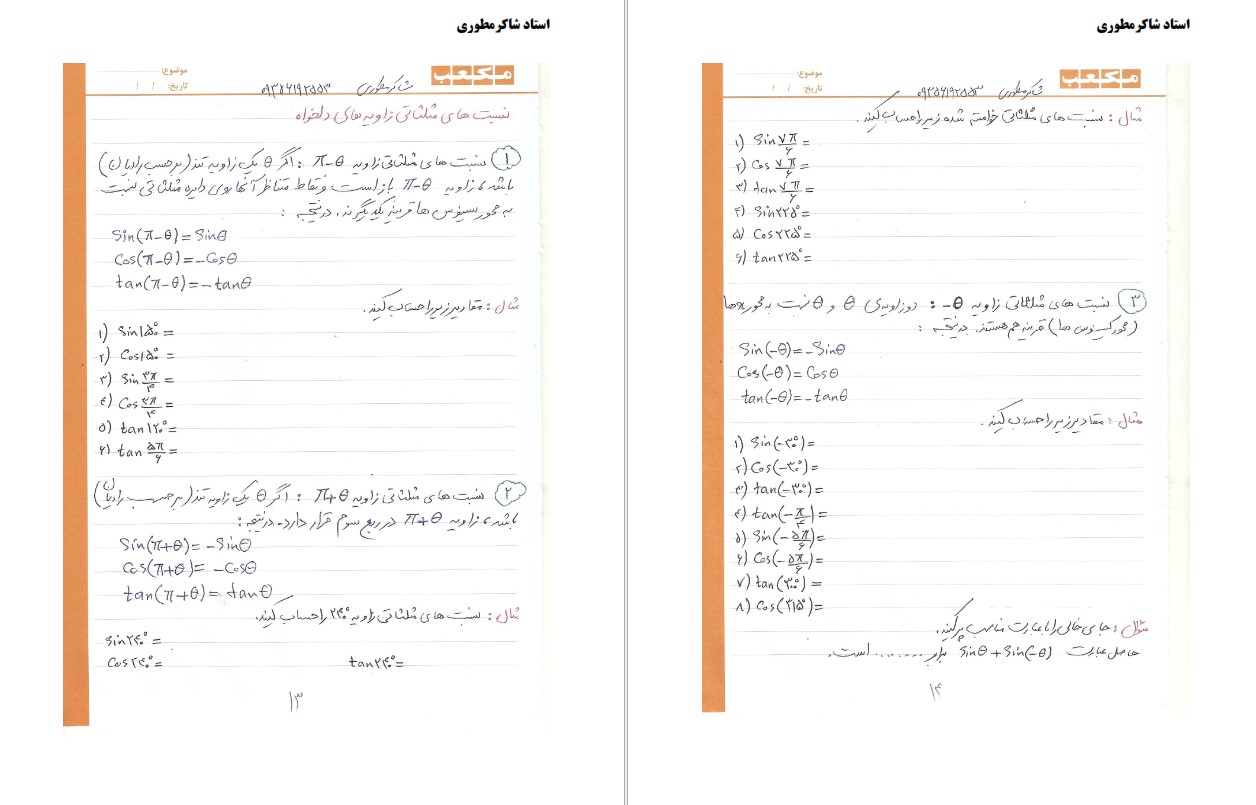 استاد شاکر مطوری
مکعب
موضوع:
تاریخ: / /
شاکر مطوری ۰۹۳۵۶۱۹۲۵۵۳
نسبت های مثلثاتی زاویه های دلخواه
۱ نسبت های مثلثاتی زاویه π-θ : اگر θ یک زاویه تند (برحسب رادیان)
باشد، زاویه π-θ باز است و نقاط متناظر آنها روی دایره مثلثاتی نسبت
به محور سینوس ها قرینه یکدیگرند. در نتیجه :
Sin(π-θ)= Sinθ
Cos(π-θ)= -Cosθ
tan(π-θ)= -tanθ
مثال : مقادیر زیر را حساب کنید.
۱) Sin۱۵۰° =
۲) Cos۱۵۰° =
۳) Sin ۳π/۴ =
۴) Cos ۳π/۴ =
۵) tan۱۲۰° =
۶) tan ۵π/۶ =
۲ نسبت های مثلثاتی زاویه π+θ : اگر θ یک زاویه تند (برحسب رادیان)
باشد، زاویه π+θ در ربع سوم قرار دارد. در نتیجه :
Sin(π+θ)= -Sinθ
Cos(π+θ)= -Cosθ
tan(π+θ)= tanθ
مثال : نسبت های مثلثاتی زاویه ۲۴۰° را حساب کنید.
Sin۲۴۰° =
Cos۲۴۰° = tan۲۴۰° =
۱۳
استاد شاکر مطوری
مکعب
موضوع:
تاریخ: / /
شاکر مطوری ۰۹۳۵۶۱۹۲۵۵۳
مثال : نسبت های مثلثاتی خواسته شده زیر را حساب کنید.
۱) Sin ۷π/۶ =
۲) Cos ۷π/۶ =
۳) tan ۷π/۶ =
۴) Sin۲۲۵° =
۵) Cos۲۲۵° =
۶) tan۲۲۵° =
۳ نسبت های مثلثاتی زاویه -θ : دو زاویه‌ی θ و -θ نسبت به محور xها
(محور کسینوس ها) قرینه هم هستند. در نتیجه :
Sin(-θ)= -Sinθ
Cos(-θ)= Cosθ
tan(-θ)= -tanθ
مثال : مقادیر زیر را حساب کنید.
۱) Sin(-۳۰°)=
۲) Cos(-۳۰°)=
۳) tan(-۳۰°)=
۴) tan(-π/۴)=
۵) Sin(-۵π/۶)=
۶) Cos(-۵π/۶)=
۷) tan(۳۰۰°)=
۸) Cos(۳۱۵°)=
سؤال : جای خالی را با عبارت مناسب پر کنید.
حاصل عبارت Sinθ + Sin(-θ) برابر ........ است.
۱۴